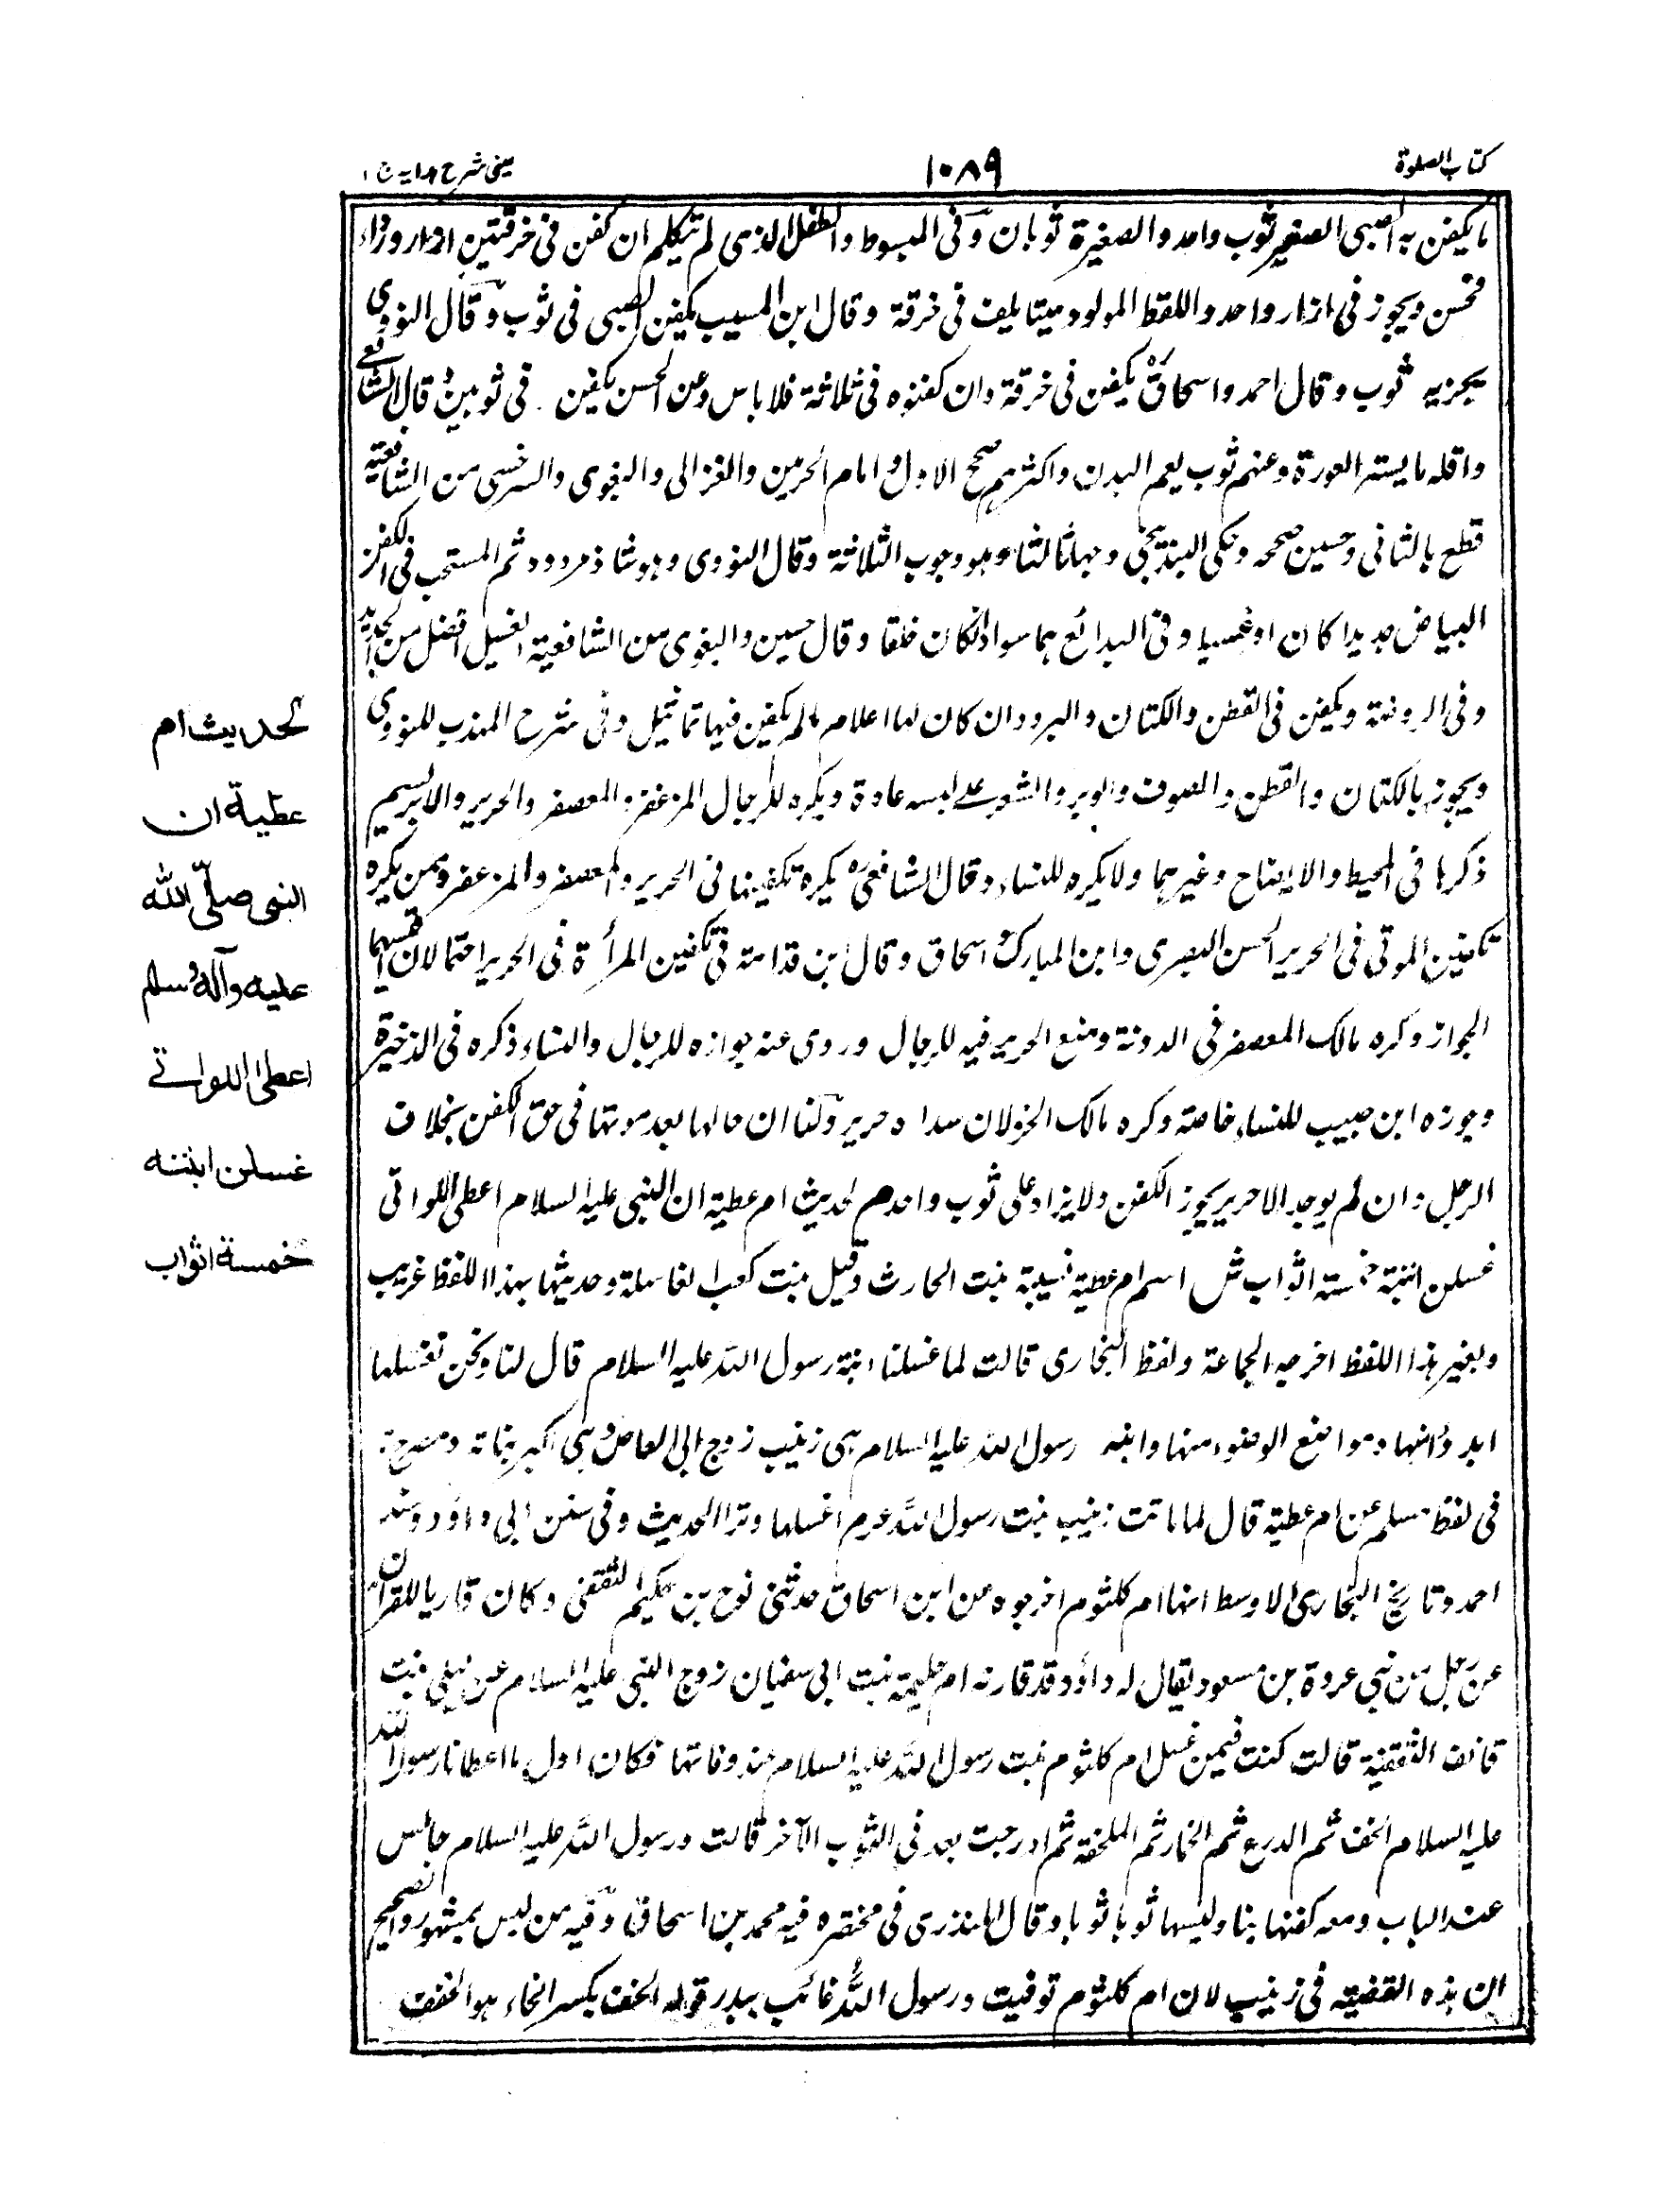 كتاب الصلوة
١٠٨٩
عينى شرح هدايه ج ١
ما يكفن به الصبى الصغير ثوب واحد والصغيرة ثوبان وفى المبسوط والطفل الذى لم يتكلم ان كفن فى خرقتين ازار ورداء
فحسن ويجوز فى ازار واحد والسقط المولود ميتا يلف فى خرقة وقال ابن المسيب يكفن الصبى فى ثوب وقال النووى
يجزيه ثوب وقال احمد واسحاق يكفن فى خرقة وان كفنوه فى ثلاثة فلا باس وعن الحسن يكفن فى ثوبين قال الشافعى
واقله ما يستر العورة وعنهم ثوب يعم البدن واكثرهم صحح الاول وامام الحرمين والغزالى والبغوى والسرخسى من الشافعية
قطع بالثانى وحسين صححه وحكى البندنيجى وجها ثالثا وهو وجوب الثلاثة وقال النووى وهو شاذ مردود ثم المستحب فى الكفن
البياض جديدا كان او غسيلا وفى البدائع هما سواء انكان خلقا وقال حسين والبغوى من الشافعية الغسيل افضل من الجديد
وفى الروضة ويكفن فى القطن والكتان والبرود ان كان لها اعلام مالم يكفن فيها تماثيل وفى شرح المهذب للنووى
ويجوز بالكتان والقطن والصوف والوبر والشعر على لبسه عادة ويكره للرجال المزعفر والمعصفر والحرير والابريسم
ذكرها فى المحيط والايضاح وغيرهما ولا يكره للنساء وقال الشافعى يكره تكفينها فى الحرير والمعصفر والمزعفر وممن يكره
تكفين الموتى فى الحرير الحسن البصرى وابن المبارك واسحاق وقال ابن قدامة فى تكفين المرأة فى الحرير احتمالان اقيسهما
الجواز وكره مالك المعصفر فى المدونة ومنع الحرير فيه للرجال وروى عنه جوازه للرجال والنساء ذكره فى الذخيرة
وجوزه ابن حبيب للنساء خاصة وكره مالك الخز لان سداه حرير ولنا ان حالها بعد موتها فى حق الكفن بخلاف
الرجل وان لم يوجد الا حرير يجوز الكفن ولا يزاد على ثوب واحد م لحديث ام عطية ان النبى عليه السلام اعطى اللواتى
غسلن ابنته خمسة اثواب ش اسم ام عطية نسيبة بنت الحارث وقيل بنت كعب الغاسلة وحديثها بهذا اللفظ غريب
وبغير هذا اللفظ اخرجه الجماعة ولفظ البخارى قالت لما غسلنا ابنة رسول الله عليه السلام قال لنا ونحن نغسلها
ابدؤا بميامنها ومواضع الوضوء منها وابنة رسول الله عليه السلام هى زينب زوج ابى العاص وهى اكبر بناته ومصرح به
فى لفظ مسلم عن ام عطية قال لما ماتت زينب بنت رسول الله عم م اغسلها وترا الحديث وفى سنن ابى داؤد ومسند
احمد وتاريخ البخارى الاوسط انها ام كلثوم اخرجوه من ابن اسحاق حدثنى نوح بن حكيم الثقفى وكان قاريا للقرآن
عن رجل من بنى عروة بن مسعود يقال له داؤد قد قارنه ام حبيبة بنت ابى سفيان زوج النبى عليه السلام عن ليلى بنت
قانف الثقفية قالت كنت فيمن غسل ام كلثوم بنت رسول الله عليه السلام عند وفاتها فكان اول ما اعطانا رسول الله
عليه السلام الحف ثم الدرع ثم الخمار ثم الملحفة ثم ادرجت بعد فى الثوب الآخر قالت ورسول الله عليه السلام جالس
عند الباب ومعه كفنها يناوليها ثوبا ثوبا وقال المنذرى فى مختصره فيه محمد بن اسحاق وفيه من ليس بمشهور والصحيح
ان هذه القضية فى زينب لان ام كلثوم توفيت ورسول الله غائب ببدر قوله الحف بكسر الحاء هو الخفف
لحديث ام
عطية ان
النبى صلى الله
عليه وآله وسلم
اعطى اللواتى
غسلن ابنته
خمسة اثواب